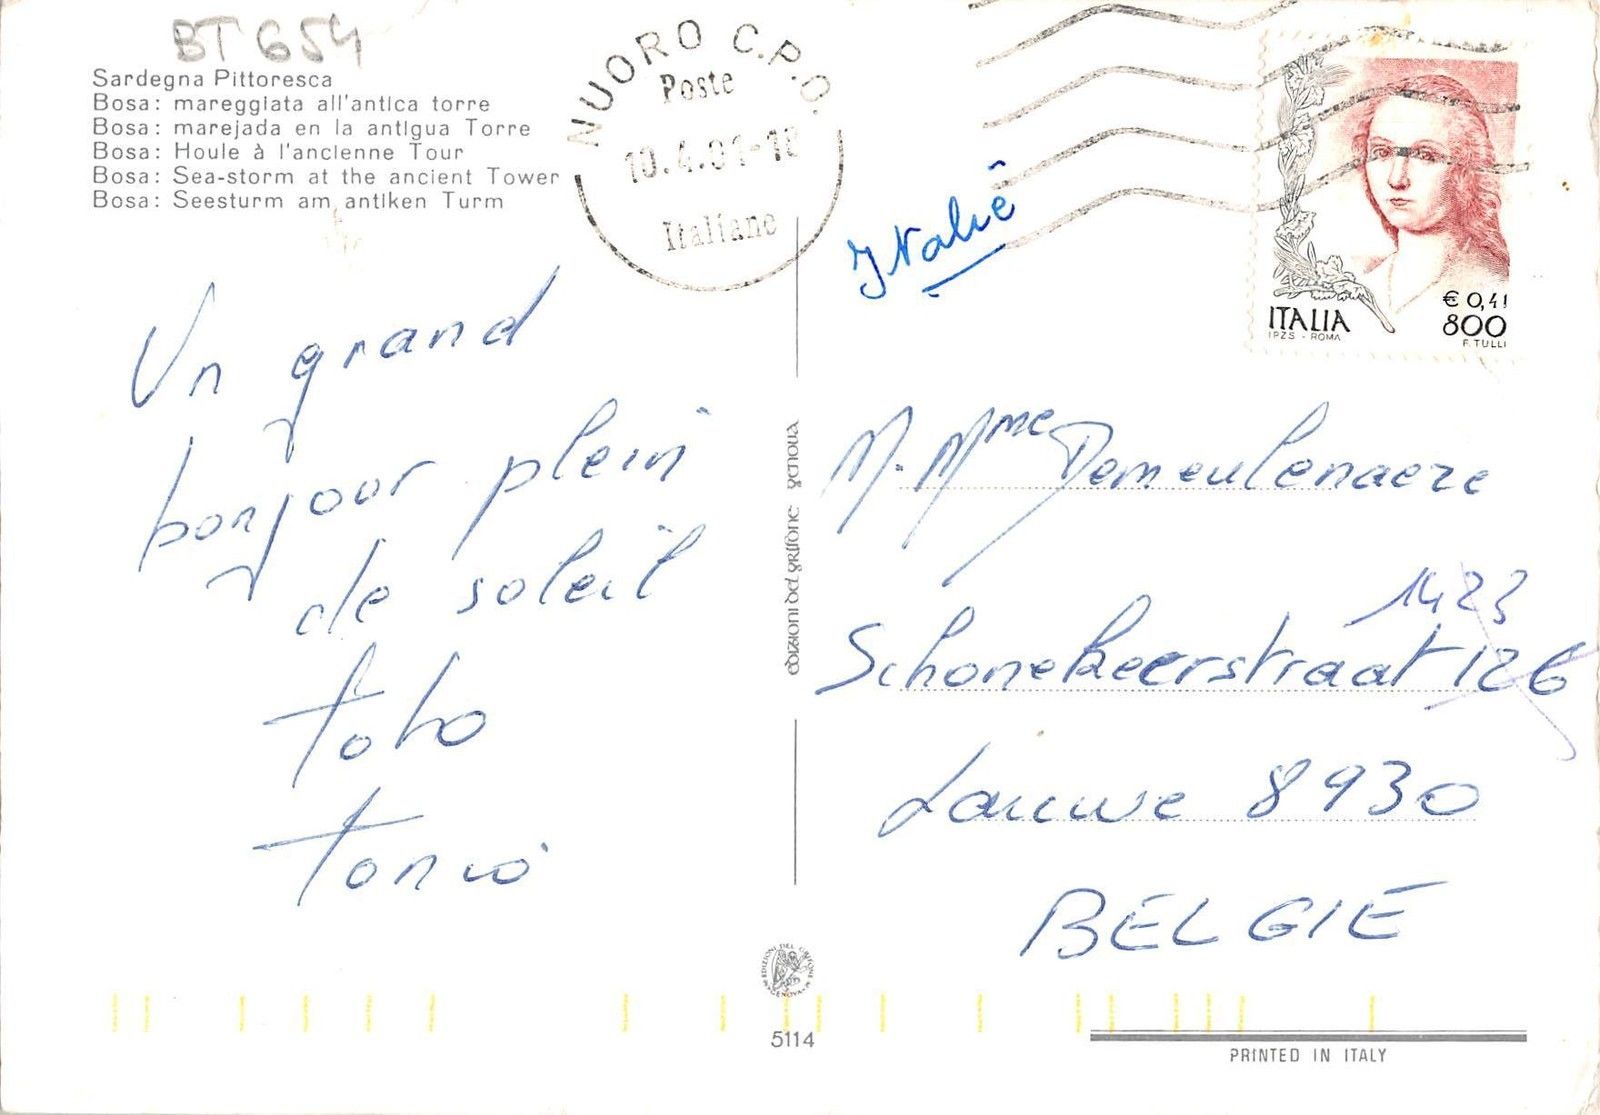 BT 654
Sardegna Pittoresca
Bosa: mareggiata all'antica torre
Bosa: marejada en la antigua Torre
Bosa: Houle à l'ancienne Tour
Bosa: Sea-storm at the ancient Tower
Bosa: Seesturm am antiken Turm
NUORO C.P.O.
Poste
10.4.01-18
Italiane
Italië
€ 0,41
ITALIA 800
IPZS - ROMA F. TULLI
Un grand
bonjour plein
de soleil
Toto
Tonio
edizioni del grifone genova
M. Mme Demeulenaere
1423
Schonekeerstraat 126
Lauwe 8930
BELGIË
EDIZIONI DEL GRIFONE
GENOVA
5114
PRINTED IN ITALY